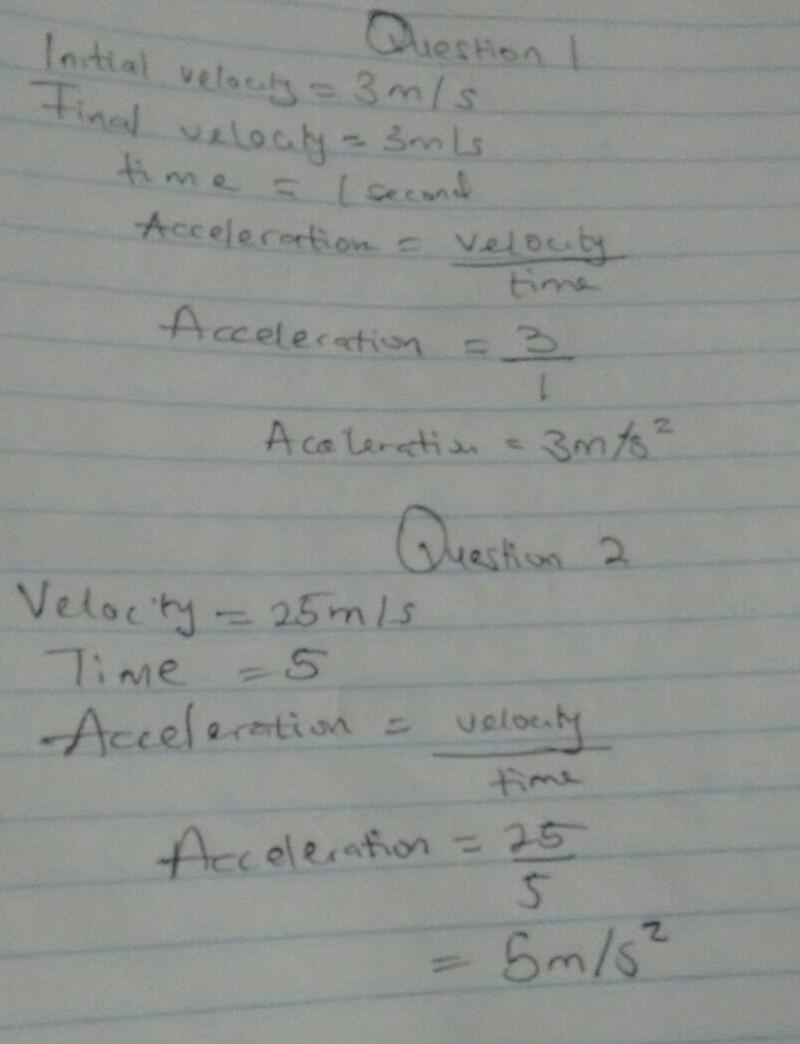 Question 1
Initial velocity = 3m/s
Final velocity = 3m/s
time = 1 second
Acceleration = velocity
time
Acceleration = 3
1
Acceleration = 3m/s²
Question 2
Velocity = 25m/s
Time = 5
Acceleration = velocity
time
Acceleration = 25
5
= 5m/s²